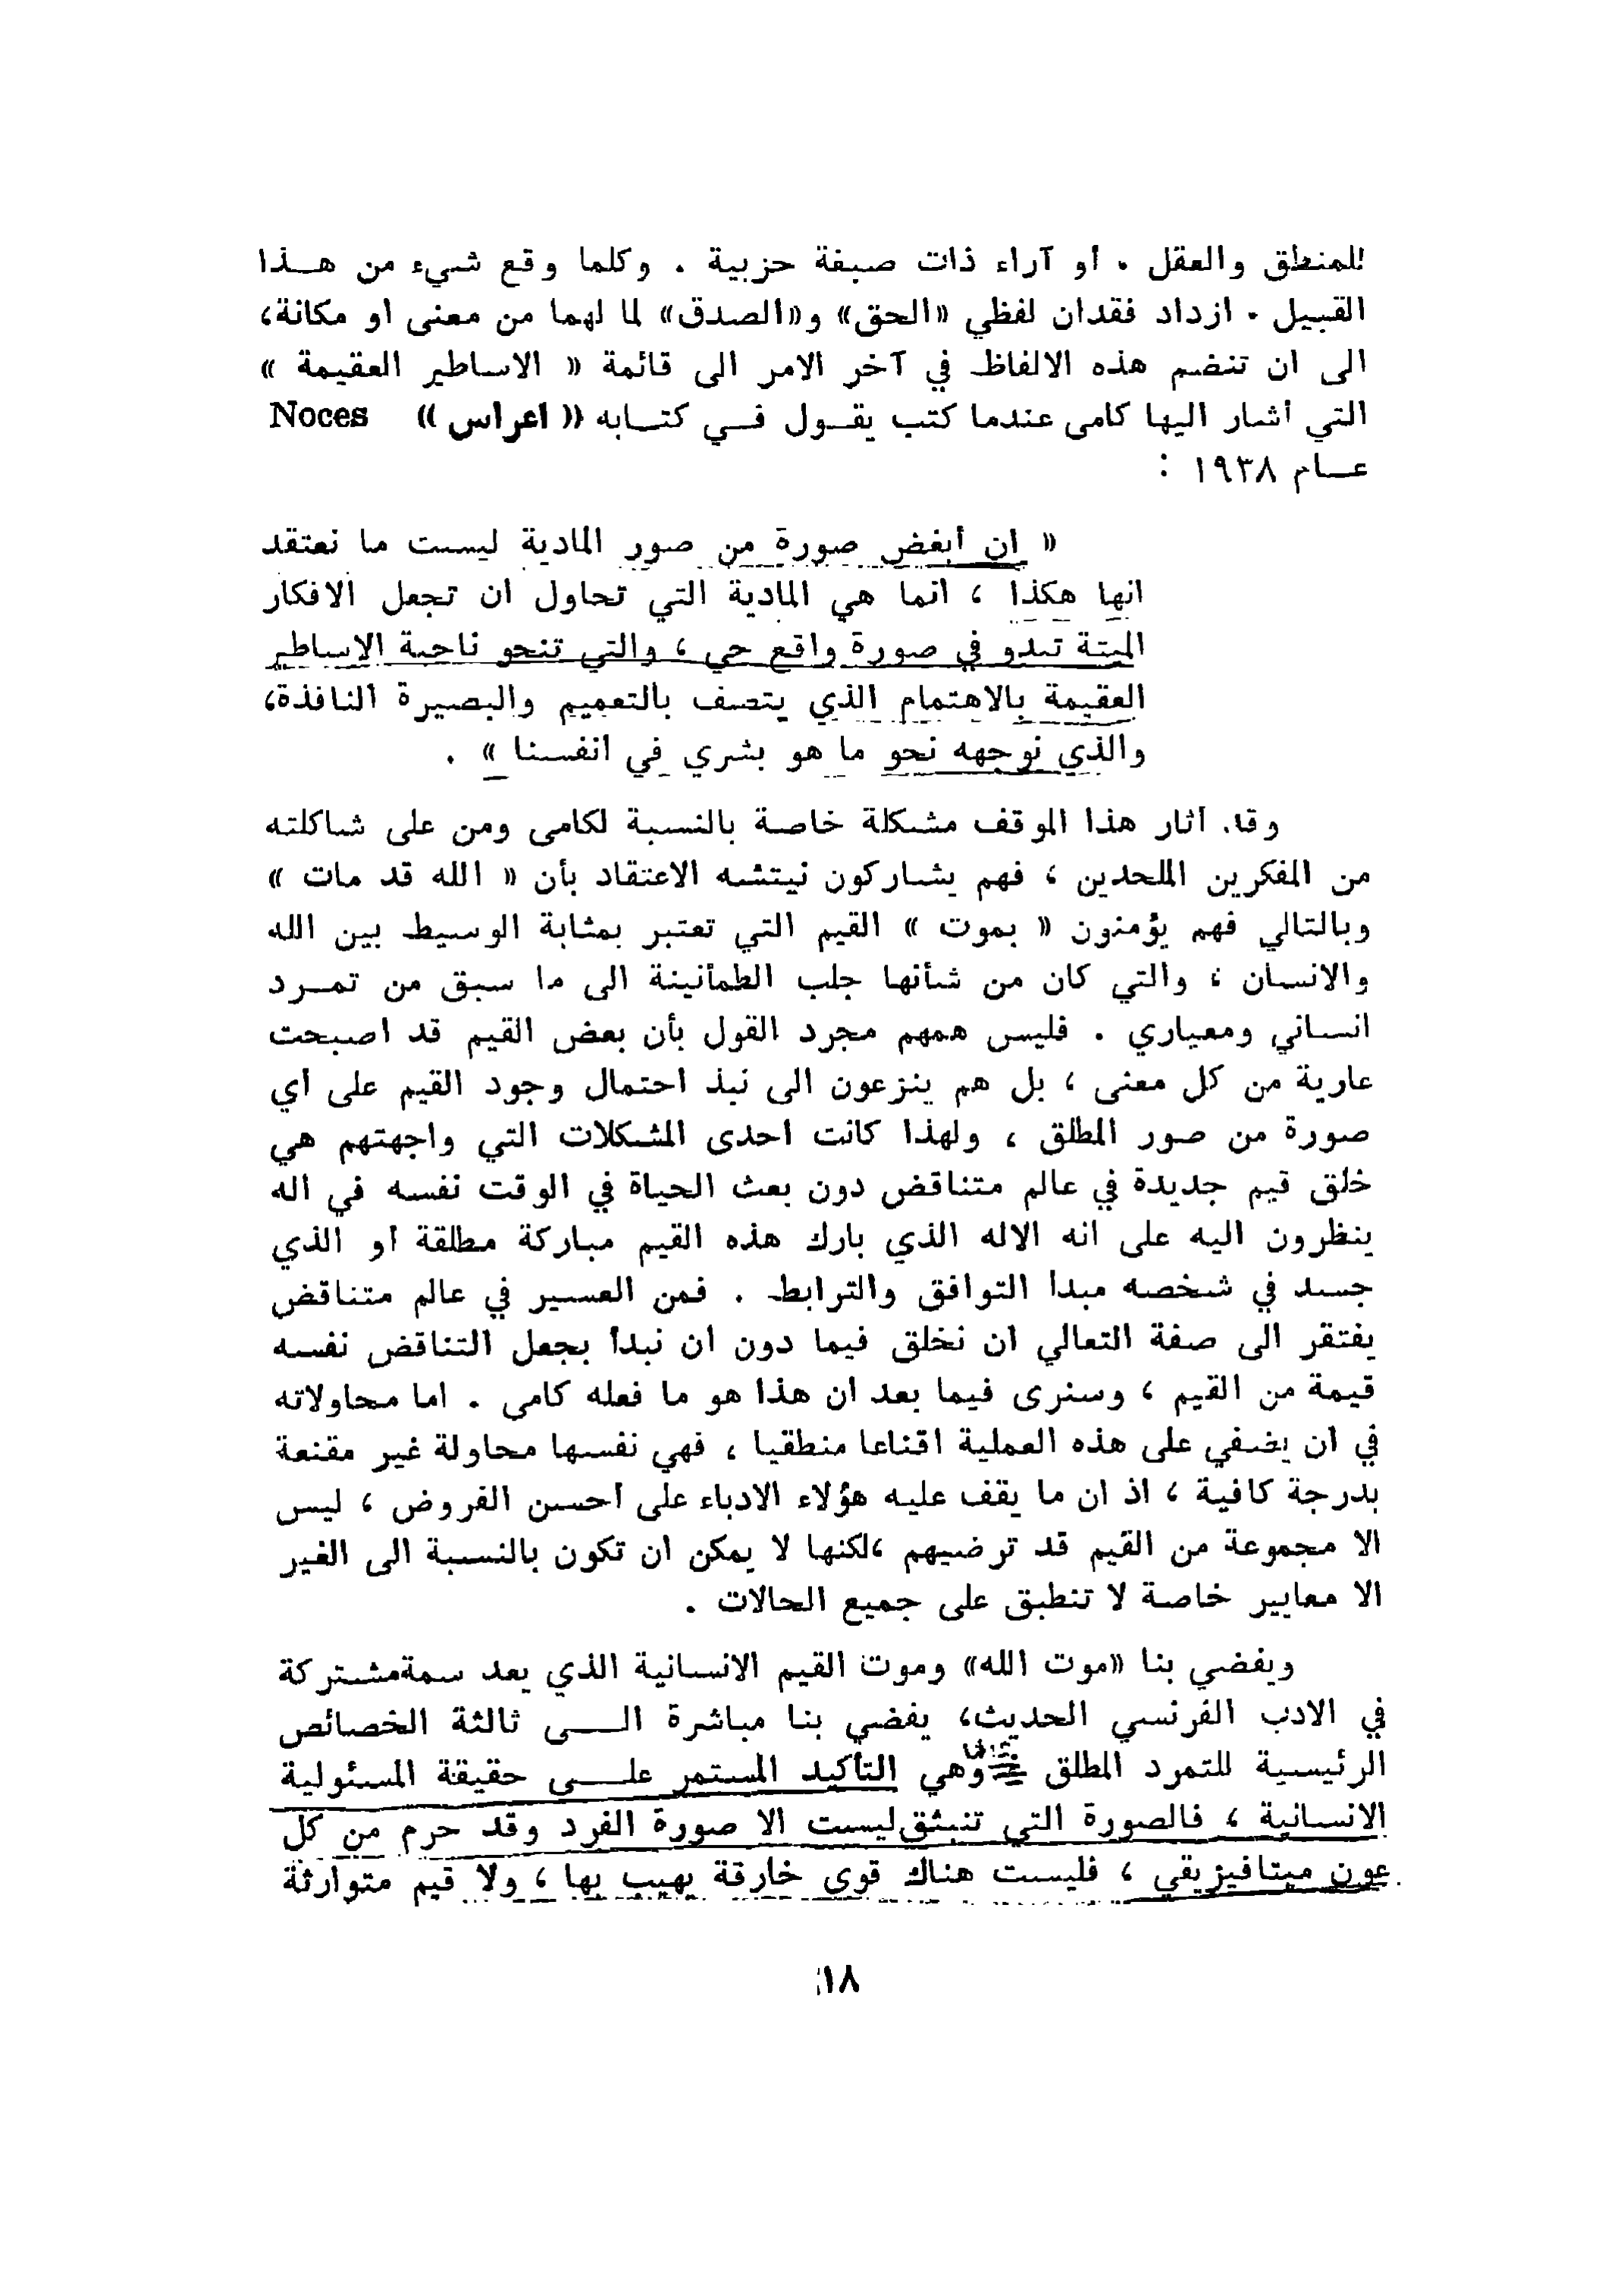 للمنطق والعقل . أو آراء ذات صبغة حزبية . وكلما وقع شيء من هــذا
القبيل . ازداد فقدان لفظي «الحق» و«الصدق» لما لهما من معنى او مكانة،
الى ان تنضم هذه الالفاظ في آخر الامر الى قائمة « الاساطير العقيمة »
التي أشار اليها كامى عندما كتب يقــول فــي كتــابه « اعراس » Noces
عــام ١٩٣٨ :
« ان أبغض صورة من صور المادية ليست ما نعتقد
انها هكذا ، انما هي المادية التي تحاول ان تجعل الافكار
الميتة تبدو في صورة واقع حي ، والتي تنحو ناحية الاساطير
العقيمة بالاهتمام الذي يتصف بالتعميم والبصيرة النافذة،
والذي نوجهه نحو ما هو بشري في انفسنا » .
وقد أثار هذا الموقف مشكلة خاصة بالنسبة لكامى ومن على شاكلته
من المفكرين الملحدين ، فهم يشاركون نيتشه الاعتقاد بأن « الله قد مات »
وبالتالي فهم يؤمنون « بموت » القيم التي تعتبر بمثابة الوسيط بين الله
والانسان ، والتي كان من شأنها جلب الطمأنينة الى ما سبق من تمــرد
انساني ومعياري . فليس همهم مجرد القول بأن بعض القيم قد اصبحت
عارية من كل معنى ، بل هم ينزعون الى نبذ احتمال وجود القيم على أي
صورة من صور المطلق ، ولهذا كانت احدى المشكلات التي واجهتهم هي
خلق قيم جديدة في عالم متناقض دون بعث الحياة في الوقت نفسه في اله
ينظرون اليه على انه الاله الذي بارك هذه القيم مباركة مطلقة أو الذي
جسد في شخصه مبدأ التوافق والترابط . فمن العسير في عالم متناقض
يفتقر الى صفة التعالي ان نخلق فيما دون ان نبدأ بجعل التناقض نفسه
قيمة من القيم ، وسنرى فيما بعد ان هذا هو ما فعله كامى . اما محاولاته
في ان يضفي على هذه العملية اقناعا منطقيا ، فهي نفسها محاولة غير مقنعة
بدرجة كافية ، اذ ان ما يقف عليه هؤلاء الادباء على أحسن الفروض ، ليس
الا مجموعة من القيم قد ترضيهم ،لكنها لا يمكن ان تكون بالنسبة الى الغير
الا معايير خاصة لا تنطبق على جميع الحالات .
ويفضي بنا «موت الله» وموت القيم الانسانية الذي يعد سمةمشتركة
في الادب الفرنسي الحديث، يفضي بنا مباشرة الــى ثالثة الخصائص
الرئيسية للتمرد المطلق وهي التأكيد المستمر علــى حقيقة المسئولية
الانسانية ، فالصورة التي تنبثق ليست الا صورة الفرد وقد حرم من كل
عون ميتافيزيقي ، فليست هناك قوى خارقة يهيب بها ، ولا قيم متوارثة
١٨